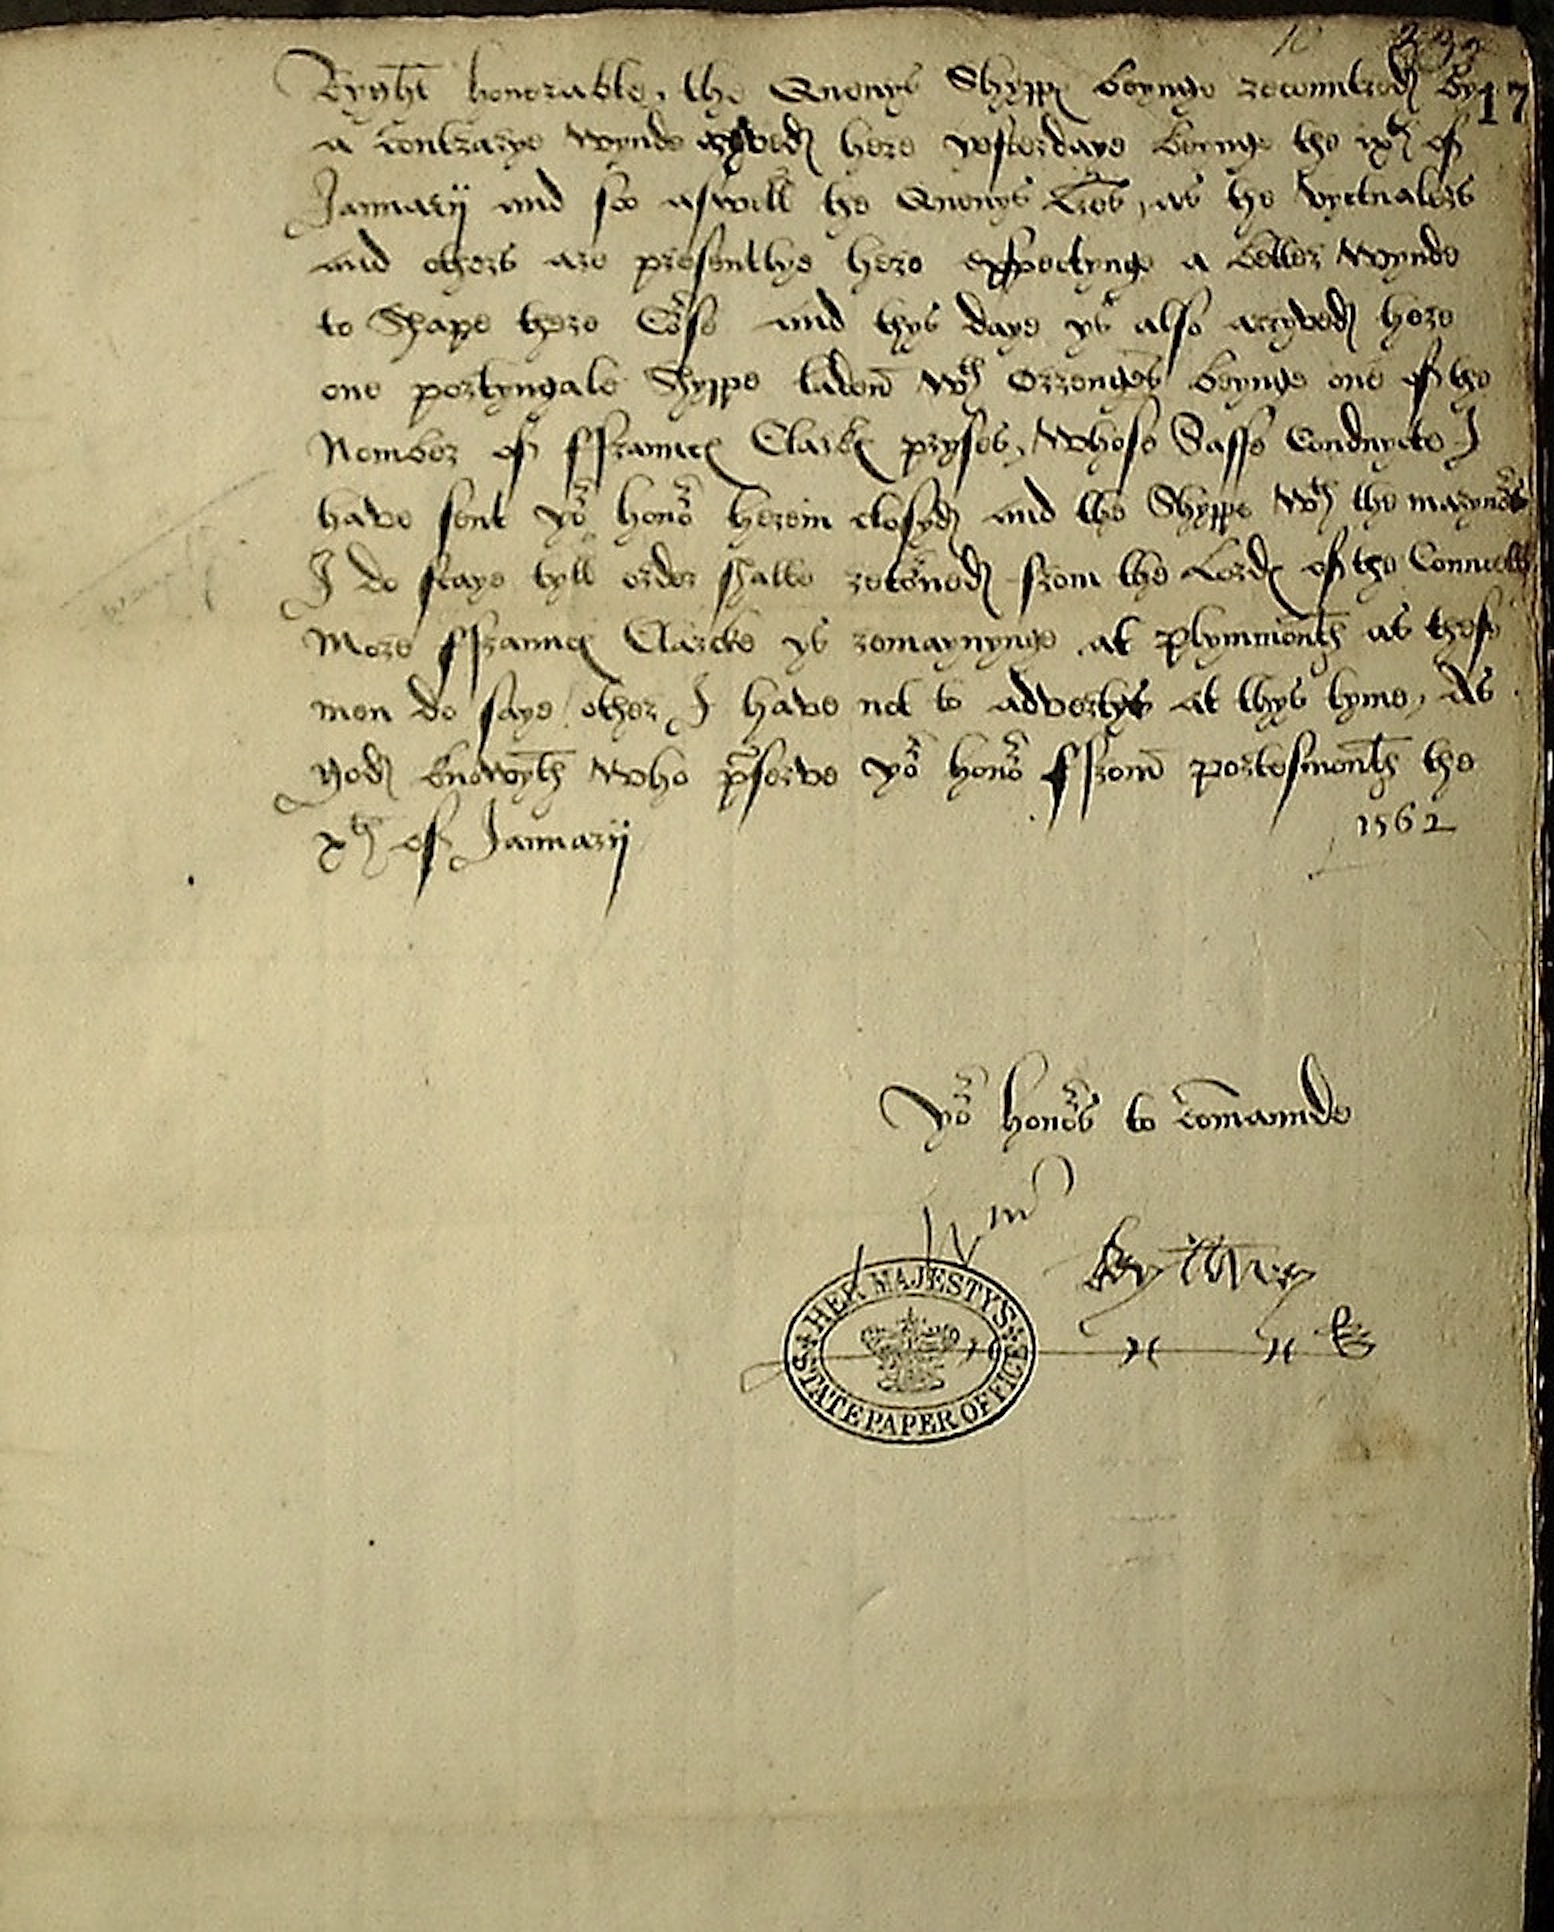 10 232
Ryght honorable, the Quenys Shypps beynge recountred by 17
a contrarye wynde aryved here yesterdaye beynge the ixth of
Januarij and so aswell the Quenys Lres, as the vyctualers
and others are presentlye here expectynge a better wynde
to shape there Corse and thys daye ys also arryved here
one portyngale Shyppe laden wth orrenges beynge one of the
Nomber of ffrancs Clarks pryses, whose Saffe Conduycte I
have sent yor honor herein closyd and the Shyppe wth the maryners
I do staye tyll order shalbe retorned from the Lords of the Counsell
More ffrancs Clarcke ys remaynynge at plymmouth as these
men do saye / other I have not to advertys at thys tyme, As
god knowyth who pserve yor honor ffrom portesmouth the
xth of Januarij 1562
Yor honors to comaunde
Wm
HER MAJESTY'S
STATE PAPER OFFICE